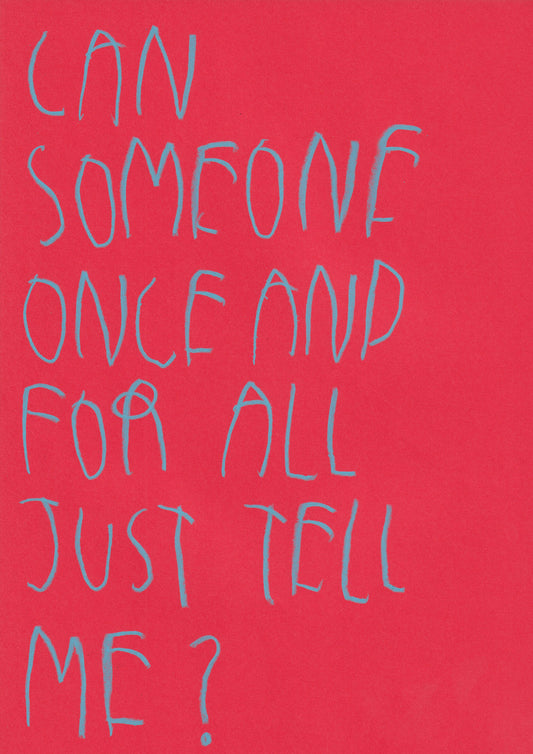 CAN
SOMEONE
ONCE AND
FOR ALL
JUST TELL
ME?